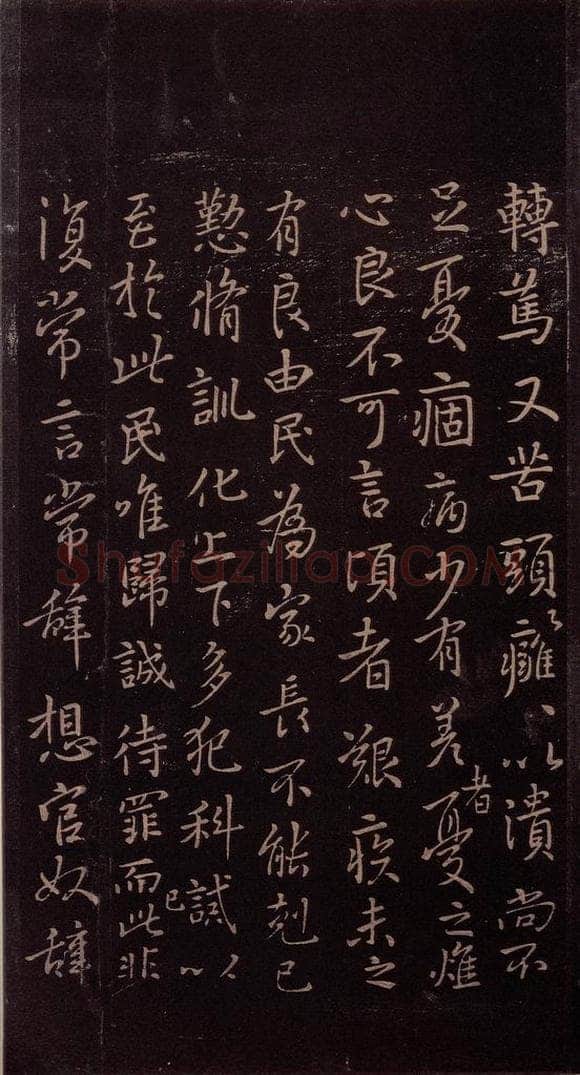 轉篤又苦頭〻癰〻以潰尚不
足憂痼病少有差者憂之燋
心良不可言頃者艱疾未之
有良由民為家長不能剋己
懃脩訓化上下多犯科誡以
至於此民唯歸誠待罪而已此非
復常言常辭想官奴辭
Shufaziliao.COM